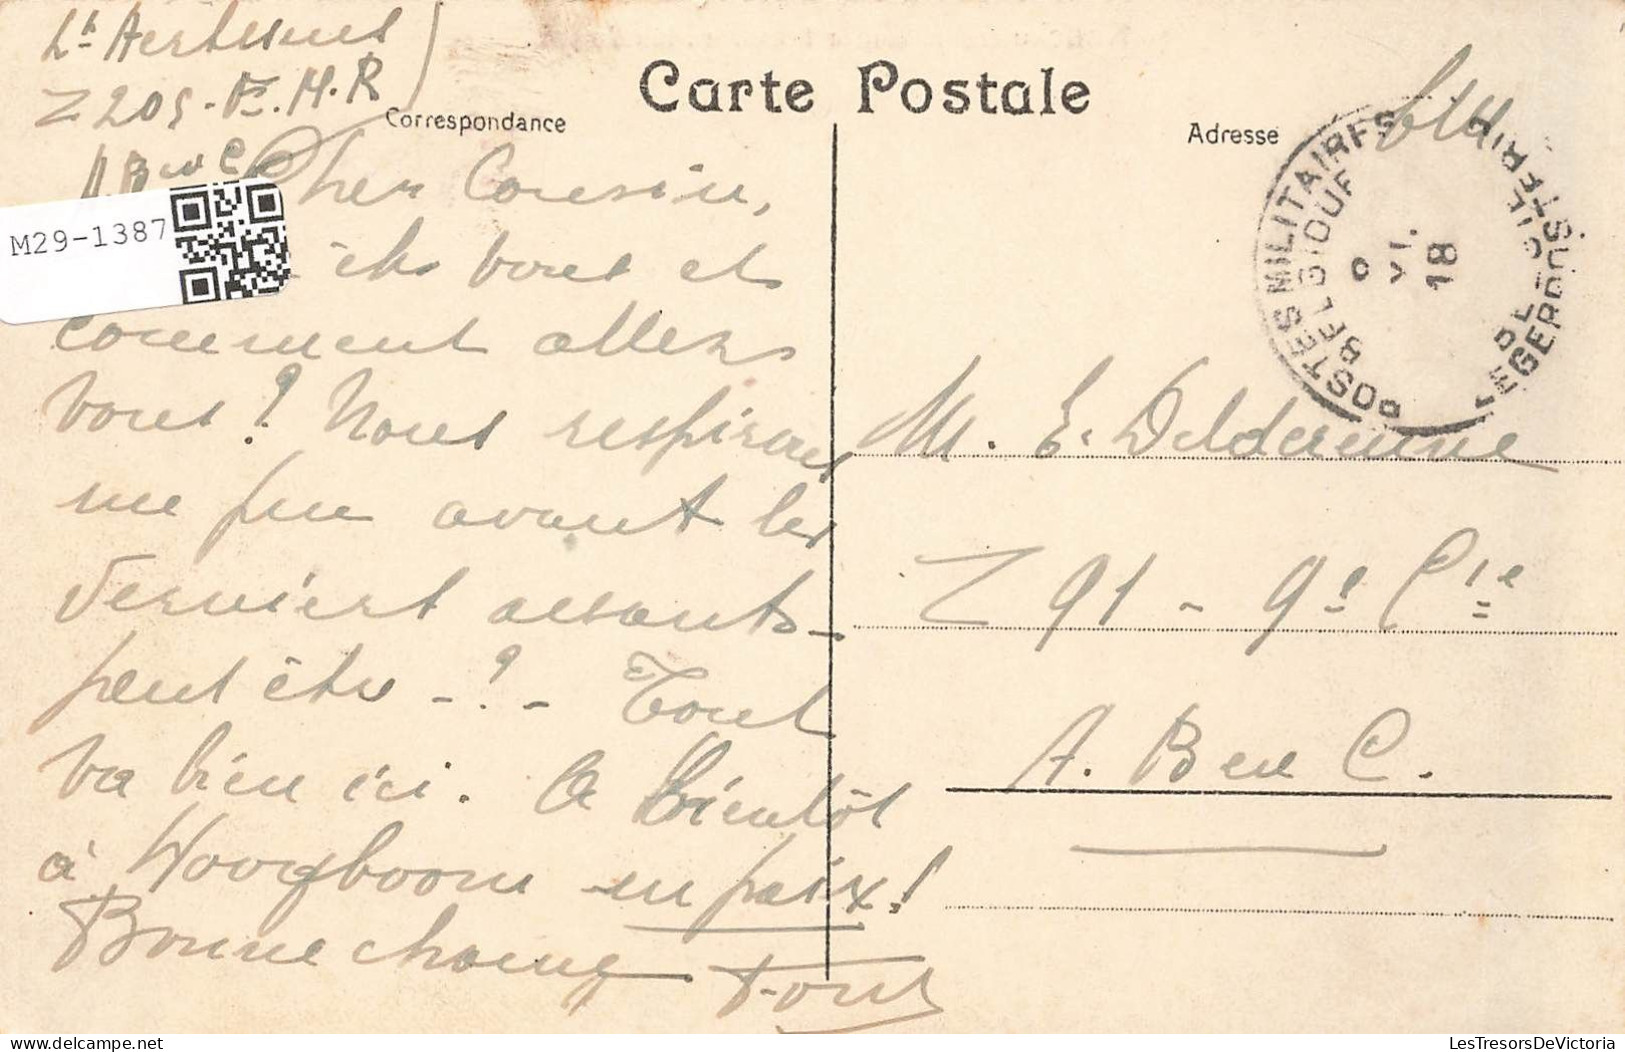 Lt Aertssens
Z 205 - F. M. R
Carte Postale
Correspondance
Adresse
M29-1387
Cher Cousin,
êtes vous et
comment allez
vous ? Nous respirons
un peu avant les
derniers assauts -
peut être - ? - Tout
va bien ici. A bientôt
à Hoogboom en paix !
Bonne chance
POSTES MILITAIRES
BELGIQUE
VI.
18
LEGERPOST
M. E. Delderenne
Z 91 - 9e Cie
A. B en C.
LesTresorsDeVictoria.com